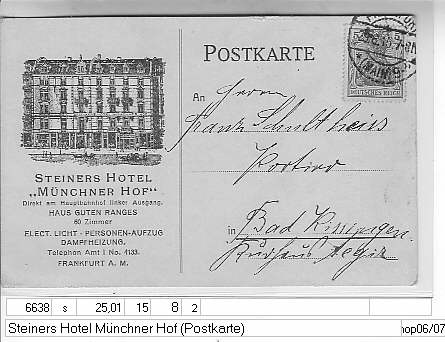 POSTKARTE
DEUTSCHES REICH
An Herrn
Franz Schultheis
Portier
in Bad Kissingen
Kurhaus Aegir
STEINERS HOTEL
„MÜNCHNER HOF“
Direkt am Hauptbahnhof linker Ausgang.
HAUS GUTEN RANGES
60 Zimmer
ELECT. LICHT - PERSONEN-AUFZUG
DAMPFHEIZUNG.
Telephon Amt I No. 4133.
FRANKFURT A. M.
6638 s 25,01 15 8 2
Steiners Hotel Münchner Hof (Postkarte)
hop06/07